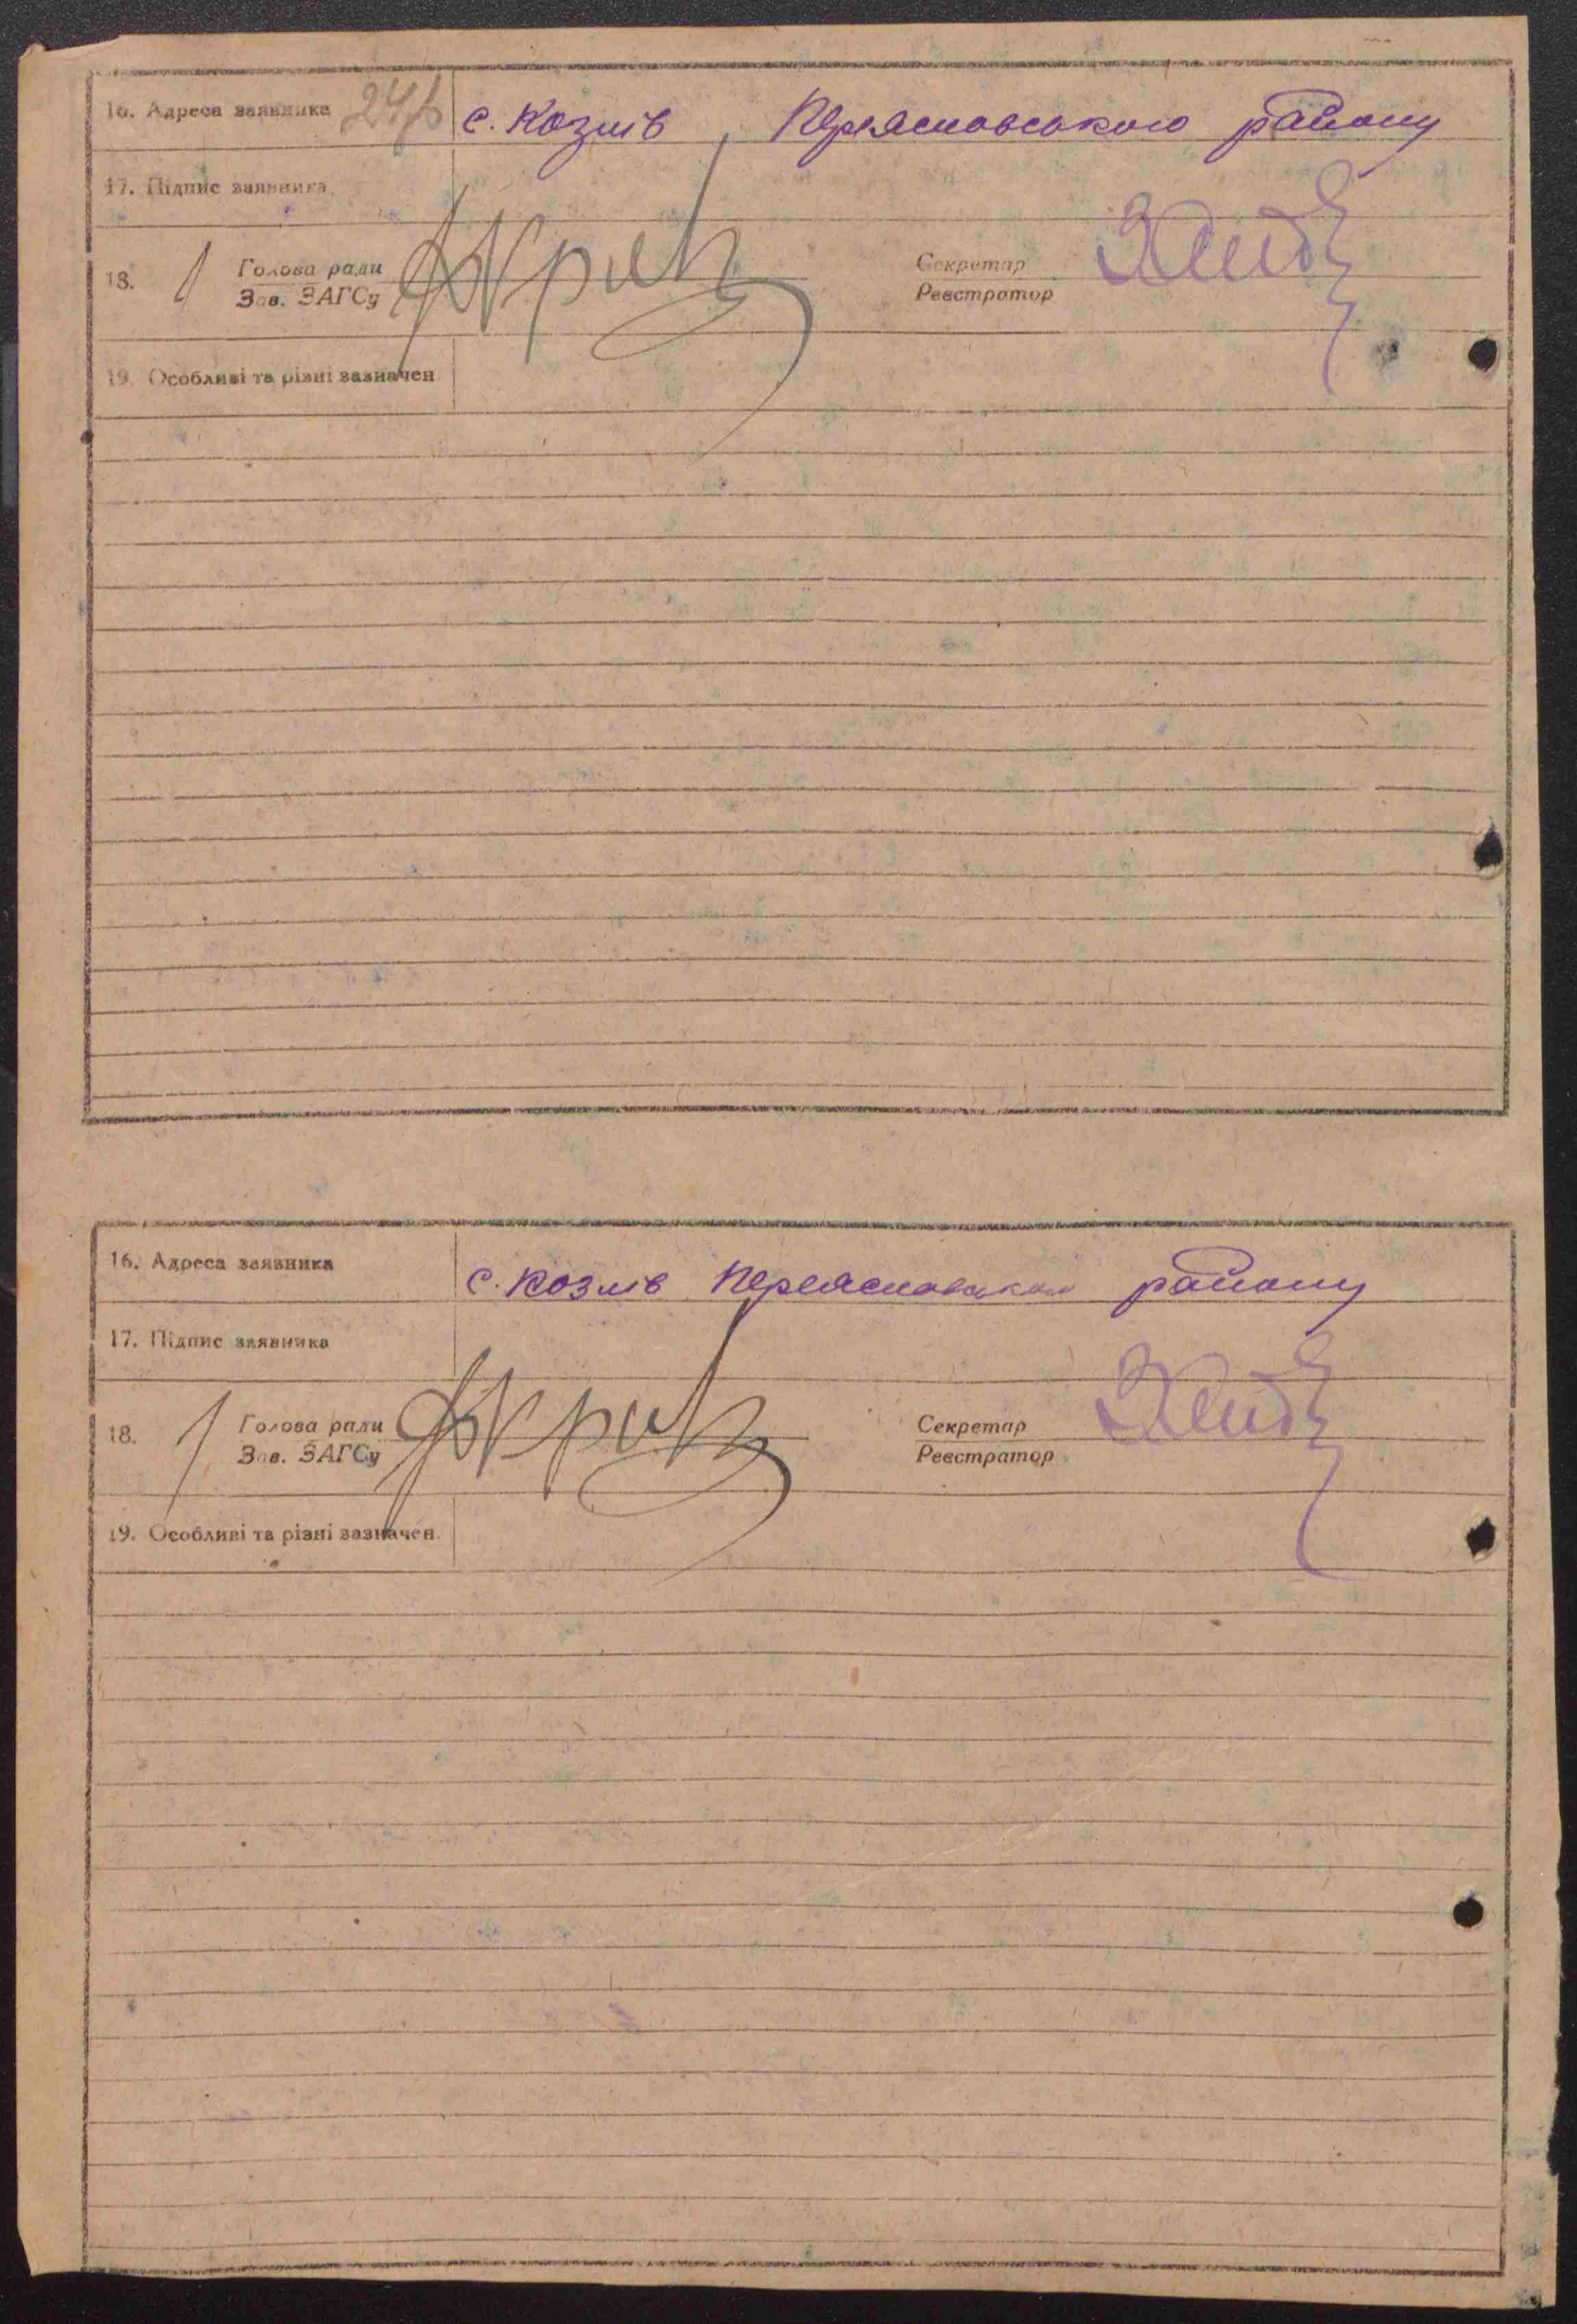 16. Адреса заявника с. Козлів, Переяславського району
17. Підпис заявника
18. Голова ради Секретар
Зав. ЗАГСу Реєстратор
19. Особливі та різні зазначен.
16. Адреса заявника с. Козлів Переяславськ району
17. Підпис заявника
18. Голова ради Секретар
Зав. ЗАГСу Реєстратор
19. Особливі та різні зазначен.